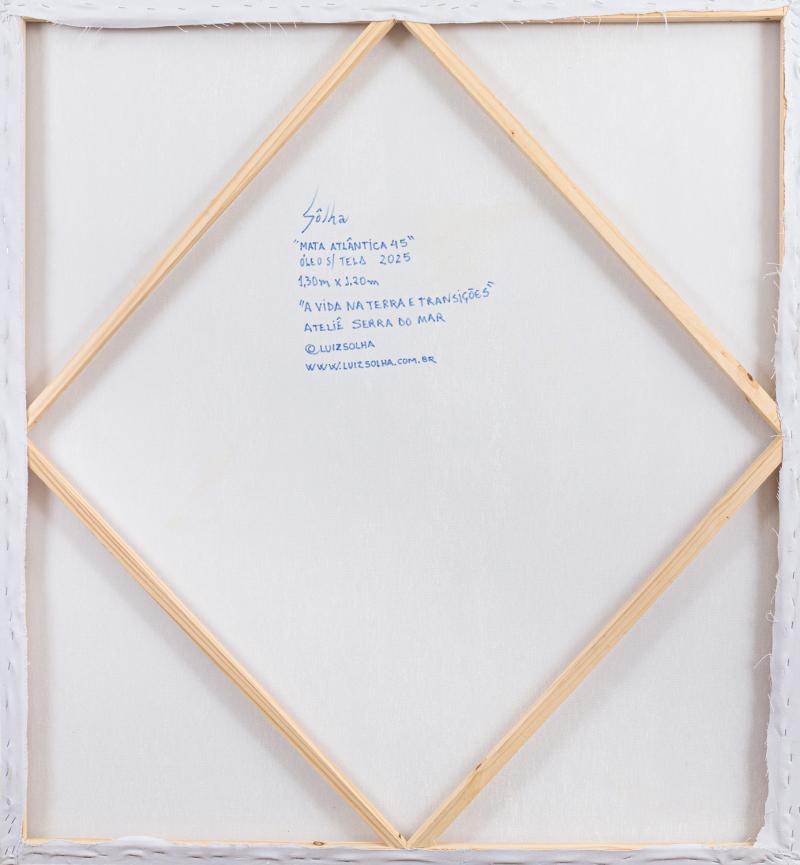 Sôlha
"MATA ATLÂNTICA 45"
ÓLEO S/ TELA 2025
1,30m x 1,20m
"A VIDA NA TERRA E TRANSIÇÕES"
ATELIÊ SERRA DO MAR
© LUIZSOLHA
WWW.LUIZSOLHA.COM.BR